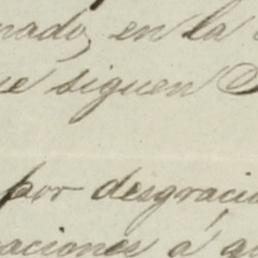 nado, en la
ue siguen
por desgracia
aciones á